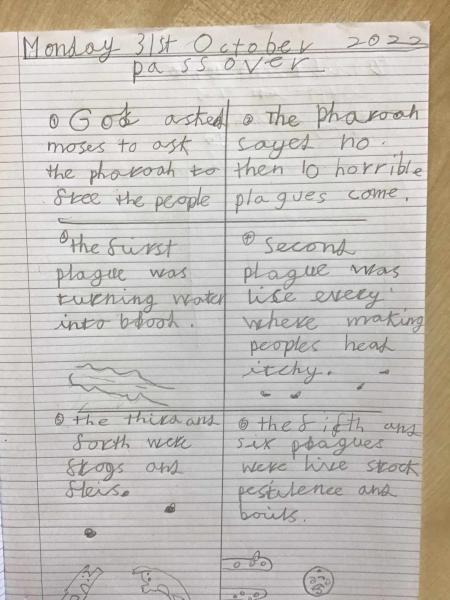 Monday 31st October 2022
passover
① God asked
moses to ask
the pharoah to
free the people
② the Pharoah
sayes no.
then 10 horrible
plagues come.
③ the furrst
plague was
turning water
into blooh.
④ Second
plague was
lise every
where making
peoples head
itchy.
⑤ the third and
forth were
frogs and
fleis.
⑥ the fifth and
six plagues
were live stock
pestulence and
boils.